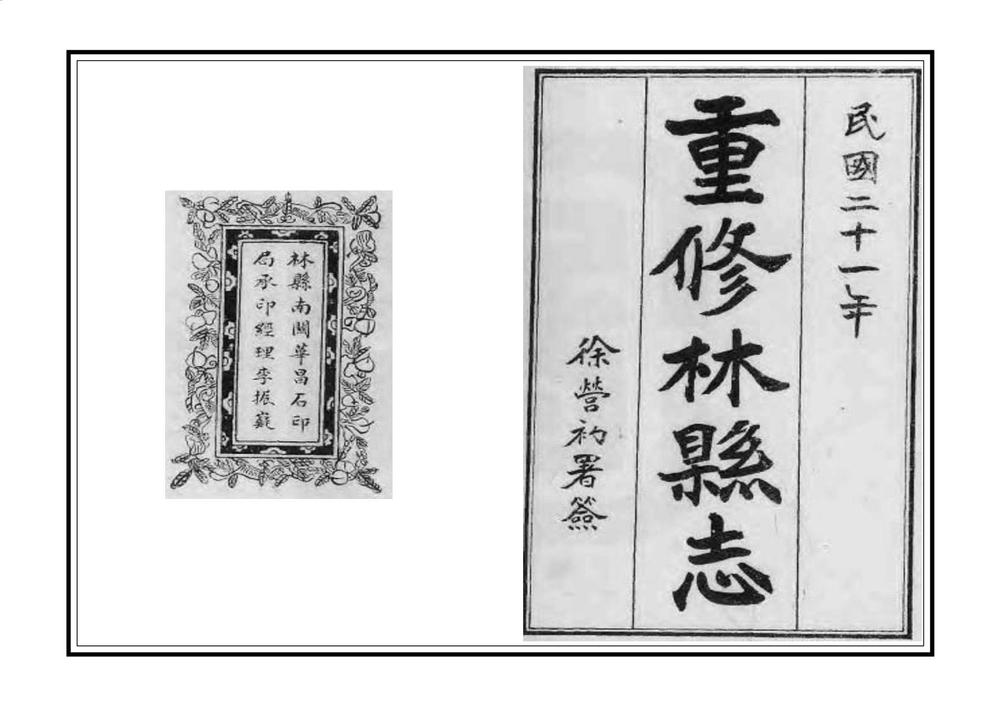 民國二十一年
重修林縣志
徐營初署簽
林縣南關華昌石印
局承印經理李振巍